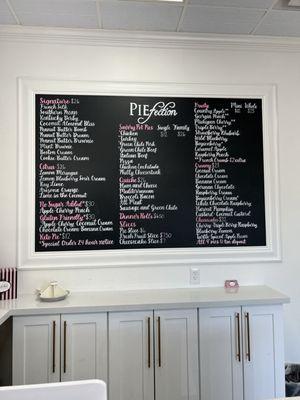 PIEfection
Signature $26
French Silk
Southern Pecan
Kentucky Derby
Coconut Almond Bliss
Peanut Butter Bomb
Peanut Butter Dream
Peanut Butter Brownie
Mint Brownie
Boston Cream
Cookie Butter Cream
Citrus $26
Lemon Meringue
Lemon Blueberry Sour Cream
Key Lime
Arizona Orange
Lime in the Coconut
No Sugar Added $30
Apple Cherry Peach
Gluten Friendly $30
Apple Cherry Coconut Cream
Chocolate Cream Banana Cream
Keto Pie $12
*Special Order 24 hour notice
Savory Pot Pies Single Family
Chicken $12 $26
Turkey
Green Chile Pork
Green Chile Beef
Italian Beef
Pizza
Chicken Enchilada
Philly Cheesesteak
Quiche
Ham and Cheese
Mediterranean
Broccoli Bacon
All Meat
Sausage and Green Chile
Dinner Rolls
Slices
Pie Slice $6
Fresh Fruit Slice $7.50
Cheesecake Slice
Fruity Mini Whole
Apple**
Country Apple**
Georgia Peach**
Michigan Cherry**
Triple Berry**
Strawberry Rhubarb
Wild Blueberry
Boysenberry**
Caramel Apple
Raspberry Peach
**French Crumb $2 extra
Creamy
Coconut Cream
Chocolate Cream
Banana Cream
German Chocolate
Raspberry Cream
Boysenberry Cream
Chocolate Peanut Butter
Apple Sour Cream
Cherry Sour Cream
Peach Sour Cream
Harvest Pumpkin
Custard - Coconut Custard
Cheesecake
Raspberry White Chocolate
Triple Chocolate
Caramel Turtle
New York Style
Blueberry Cheesecake